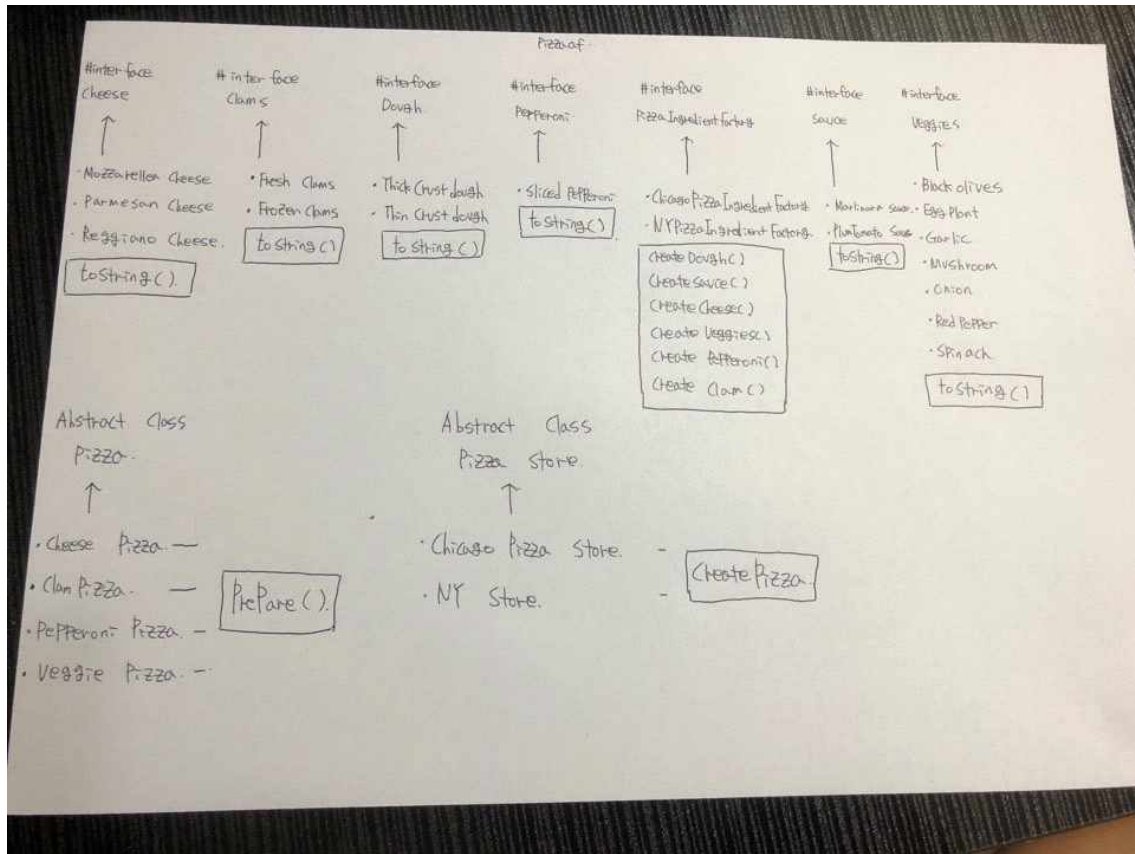 Pizzaaf.
#interface
Cheese
↑
· Mozzarellea Cheese
· Parmesan Cheese
· Reggiano Cheese.
toString().
#interface
Clams
↑
· Fresh Clams
· Frozen Clams
toString()
#interface
Dough.
↑
· Thick Crust dough
· Thin Crust dough
toString()
#interface
Pepperoni.
↑
· Sliced Pepperoni
toString()
#interface
Pizza Ingredient Factory
↑
· Chicago Pizza Ingredient Factory
· NYPizza Ingredient Factory.
Create Dough()
Create Sauce()
Create Cheese()
Create Veggies()
Create Pepperoni()
Create Clam()
#interface
Sauce
↑
· Marinara Sauce.
· PlumTomato Sauce
toString()
#interface
Veggies
↑
· Black olives
· Egg Plant
· Garlic
· Mushroom
· Onion
· Red Pepper
· Spinach
toString()
Abstract Class
Pizza.
↑
· Cheese Pizza. —
· Clam Pizza. —
· Pepperoni Pizza. —
· Veggie Pizza. —
Prepare().
Abstract Class
Pizza Store.
↑
· Chicago Pizza Store. -
· NY Store. -
Create Pizza.